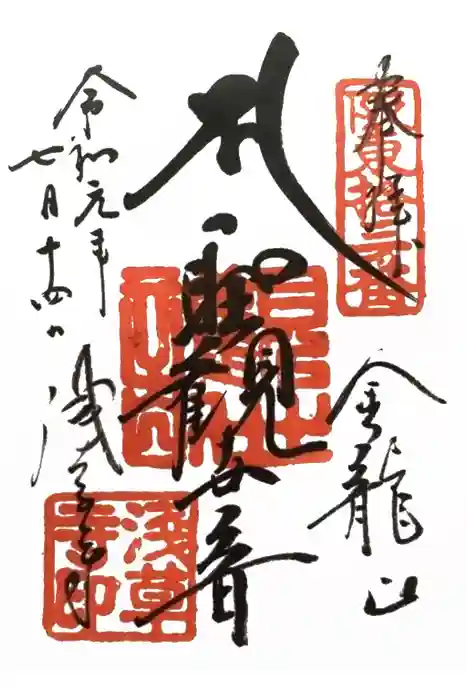 奉拝
坂東拾三番
金龍山
聖観世音
令和元年
七月十四日
浅草寺
浅草
寺印